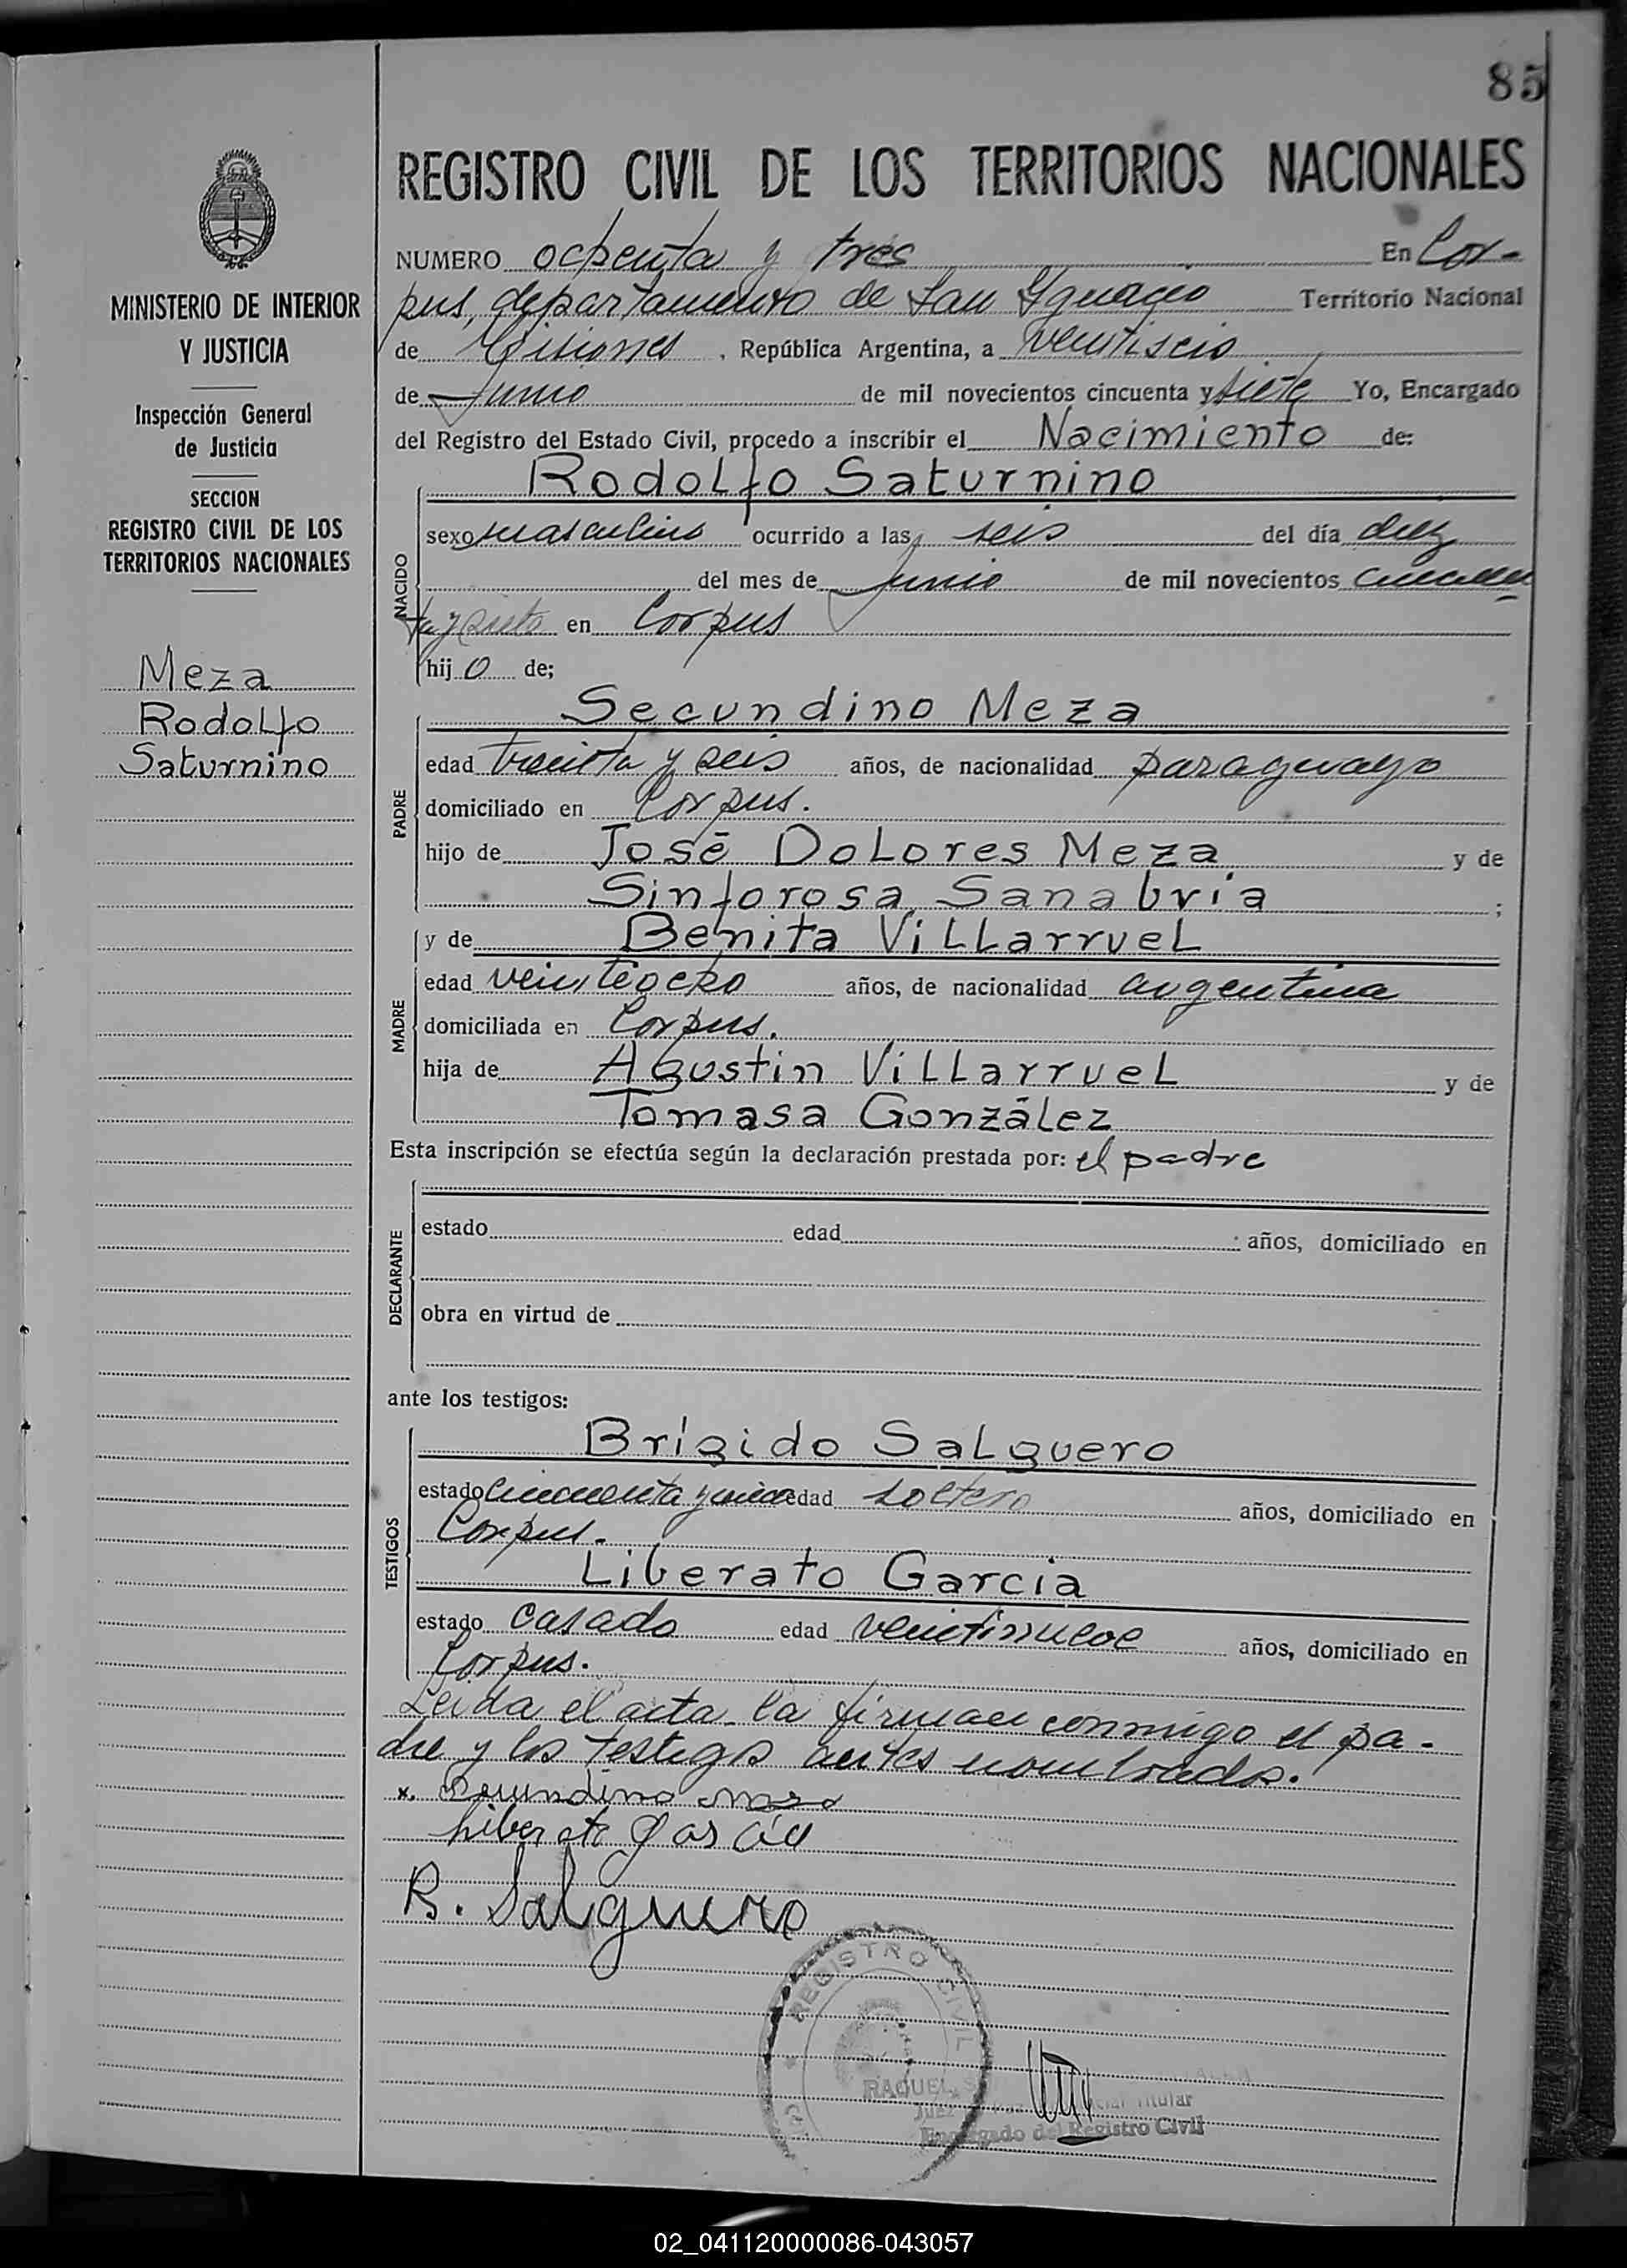 85
REGISTRO CIVIL DE LOS TERRITORIOS NACIONALES
NUMERO ochenta y tres En Cor-
pus, departamento de San Ygnacio Territorio Nacional
de Misiones, República Argentina, a veintiseis
de Junio de mil novecientos cincuenta y siete Yo, Encargado
del Registro del Estado Civil, procedo a inscribir el Nacimiento de:
MINISTERIO DE INTERIOR
Y JUSTICIA
Inspección General
de Justicia
SECCION
REGISTRO CIVIL DE LOS
TERRITORIOS NACIONALES
Meza
Rodolfo
Saturnino
NACIDO
Rodolfo Saturnino
sexo masculino ocurrido a las seis del día diez
del mes de Junio de mil novecientos cincuen
ta y siete en Corpus
hijo de;
PADRE
Secundino Meza
edad treinta y seis años, de nacionalidad paraguayo
domiciliado en Corpus.
hijo de José Dolores Meza y de
Sinforosa Sanabria ;
MADRE
y de Benita Villarruel
edad veinteocho años, de nacionalidad argentina
domiciliada en Corpus.
hija de Agustin Villarruel y de
Tomasa González
Esta inscripción se efectúa según la declaración prestada por: el padre
DECLARANTE
estado edad años, domiciliado en
obra en virtud de
ante los testigos:
TESTIGOS
Brígido Salguero
estado cincuenta y edad soltero años, domiciliado en
Corpus.
Liberato Garcia
estado casado edad veintinueve años, domiciliado en
Corpus.
Leida el acta la firman conmigo el pa-
dre y los testigos antes nombrados.
x. Secundino Meza
Liberato Garcia
B. Salguero
REGISTRO CIVIL
RAQUEL
Juez Titular
Encargado del Registro Civil
02_041120000086-043057